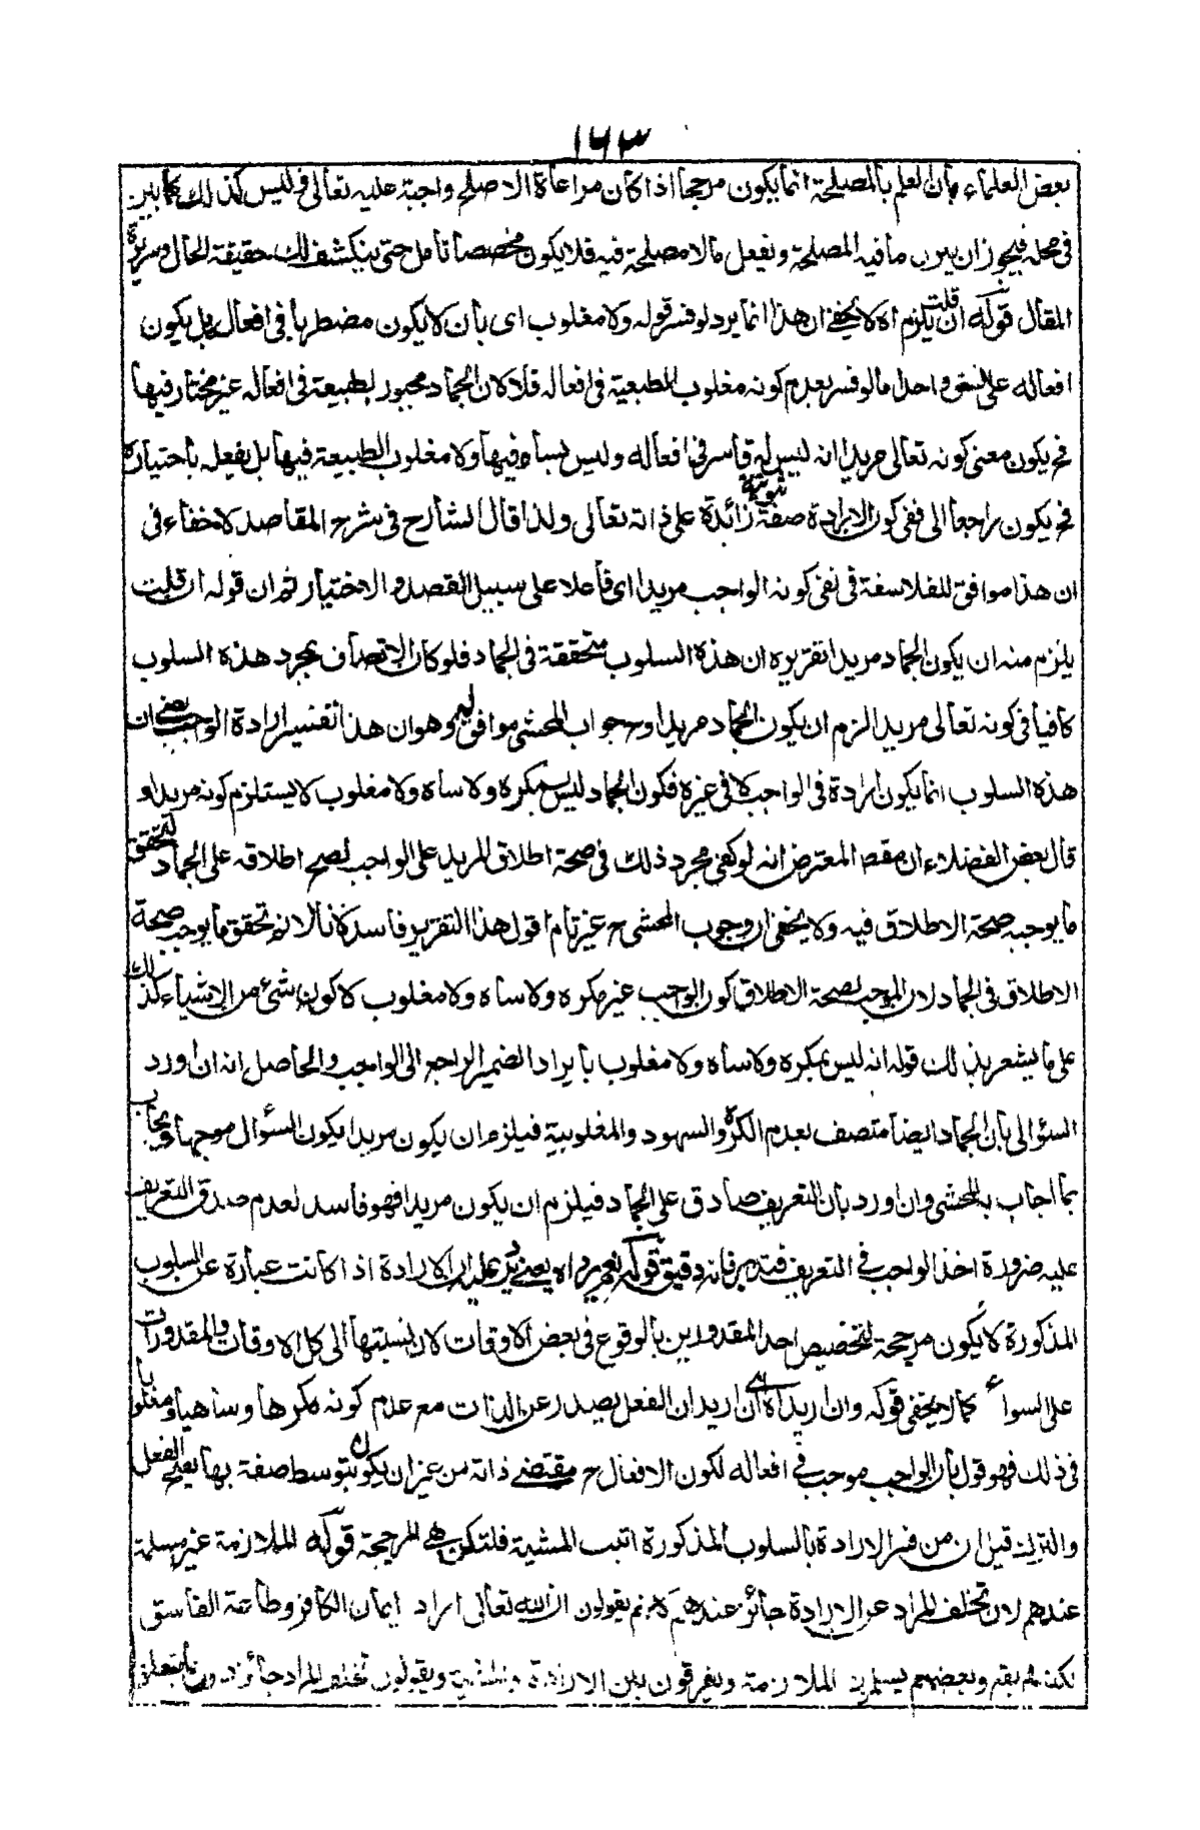 ١٦٣
بعض العلماء بان العلم بالمصلحة انما يكون مرجحا اذا كان مراعاة الاصلح واجبة عليه تعالى وليس كذلك كما بين
فى محله فيجوز ان يترك ما فيه المصلحة ويفعل ما لا مصلحة فيه فلا يكون مخصصا تامل حتى ينكشف لك حقيقة الحال وسريرة
المقال قوله ان قلت يلزم اه لا يخفى ان هذا انما يرد لو فسر قوله ولا مغلوب اى بان لا يكون مضطربا فى افعاله بل يكون
افعاله على نسق واحد اما لو فسر بعدم كونه مغلوب الطبيعية فى افعاله فلا كان الجماد مجبور لطبيعة فى افعاله غير مختار فيها
فح يكون معنى كونه تعالى مريدا انه ليس له قاسر فى افعاله وليس بساه فيها ولا مغلوب الطبيعة فيها بل يفعله باختياره
فح يكون راجعا الى نفى كون الارادة صفة ثبوتية زائدة على ذاته تعالى ولذا قال الشارح فى شرح المقاصد لا خفاء فى
ان هذا موافق للفلاسفة فى نفى كونه الواجب مريدا اى فاعلا على سبيل القصد والاختيار ثم ان قوله ان قلت
يلزم منه ان يكون الجماد مريدا تقريره ان هذه السلوب متحققة فى الجماد فلو كان الاتصاف بمجرد هذه السلوب
كافيا فى كونه تعالى مريدا لزم ان يكون الجماد مريدا وح جواب المحشى موافق له وهو ان هذا تفسير ارادة الواجب يعنى ان
هذه السلوب انما يكون ارادة فى الواجب لا فى غيره فكون الجماد ليس بمكره ولا ساه ولا مغلوب لا يستلزم كونه مريدا و
قال بعض الفضلاء ان مقصد المعترض انه لو كفى مجرد ذلك فى صحة اطلاق المريد على الواجب لصح اطلاقه على الجماد لتحقق
ما يوجب صحة الاطلاق فيه ولا يخفى ان جواب المحشى ح غير تام اقول هذا التقرير فاسد لانا لا نم تحقق ما يوجب صحة
الاطلاق فى الجماد لان الموجب لصحة الاطلاق كون الواجب غير مكره ولا ساه ولا مغلوب لا كون شئ من الاشياء كذلك
على ما يشعر بذلك قوله انه ليس بمكره ولا ساه ولا مغلوب بايراد الضمير الراجع الى الواجب والحاصل انه ان اورد
السئوال بان الجماد ايضا متصف بعدم الكره والسهود والمغلوبية فيلزم ان يكون مريدا يكون السئوال موجها ويجاب
بما اجاب به المحشى وان اورد بان التعريف صادق على الجماد فيلزم ان يكون مريدا فهو فاسد لعدم صدق التعريف
عليه ضرورة اخذ الواجب فى التعريف فتدبر فانه دقيق قوله نعم يرد اه يعنى يرد عليه ان الارادة اذا كانت عبارة عن السلوب
المذكورة لا يكون مرجحة لتخصيص احد المقدورين بالوقوع فى بعض الاوقات لان نسبتها الى كل الاوقات والمقدورات
على السواء كما لا يخفى قوله وان اريد اه اى ان اريد ان الفعل يصدر عن الذات مع عدم كونه مكرها وساهيا ومغلوبا
فى ذلك فهو قول بان الواجب موجب فى افعاله لكون الافعال ح مقتضى ذاته من غير ان يكون بتوسط صفة بها يصح الفعل
والترك قيل ان من فسر الارادة بالسلوب المذكورة اثبت المشية فلتكن هى المرجحة قوله الملازمة غير مسلمة
عندهم لان تخلف المراد عن الارادة جائز عندهم لانهم يقولون ان الله تعالى اراد ايمان الكافر وطاعة الفاسق
لكنه لم يقع وبعضهم يسلمون الملازمة ويفرقون بين الارادة والمشية ويقولون تخلف المراد جائز دون